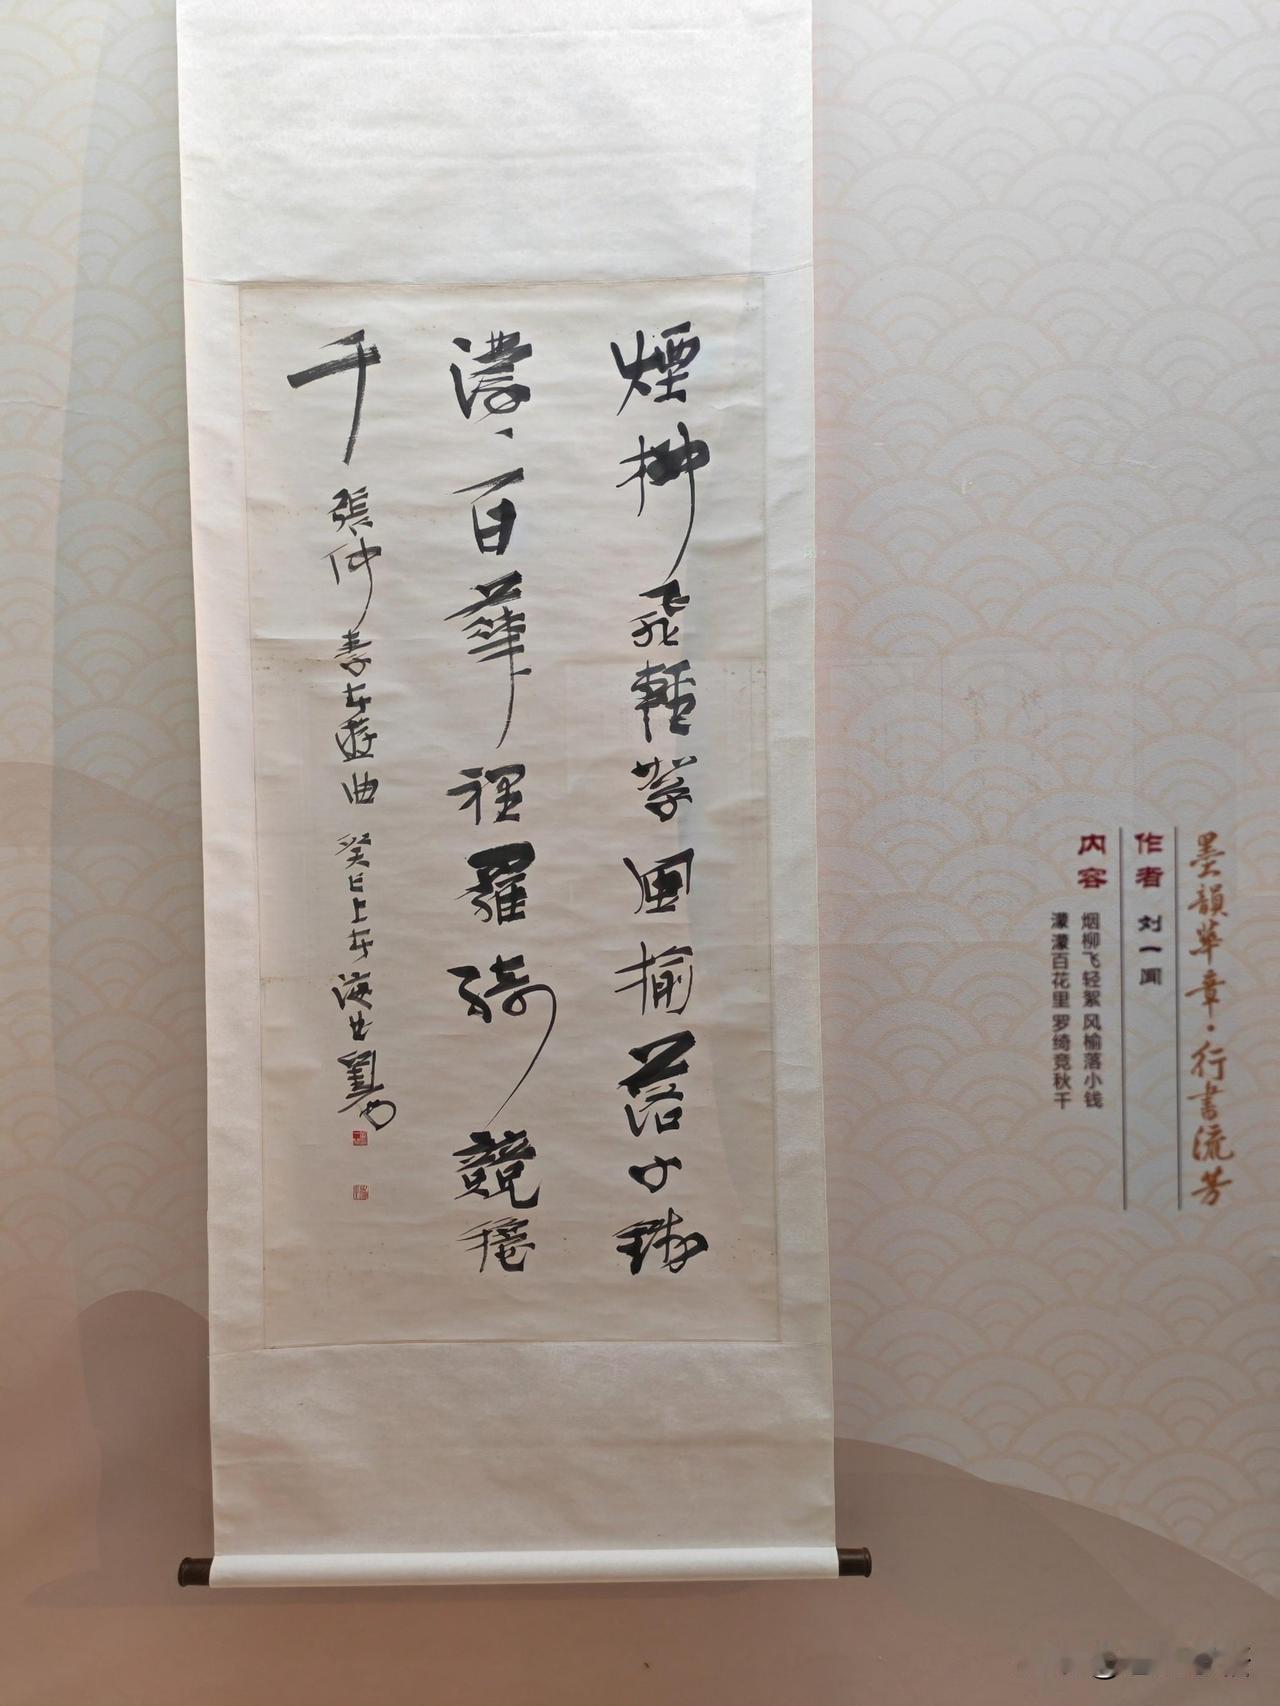 煙柳飛輕絮風榆落小錢
濛濛百華裡羅綺競鞦
千
張仲素春遊曲 癸巳上春海上劉一聞
墨韻華章·行書流芳
作者 刘一闻
内容 烟柳飞轻絮 风榆落小钱
濛濛百花里 罗绮竞秋千